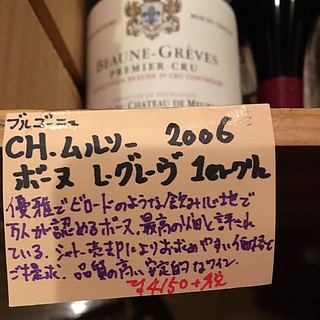 BEAUNE-GRÈVES
PREMIER CRU
APPELLATION BEAUNE 1er CRU CONTRÔLÉE
CHATEAU DE
ブルゴーニュ
CH.ムルソー 2006
ボーヌ レ・グレーヴ 1erグラ
優雅でビロードのような飲み心地で
万人が認めるボーヌ.最高の1個と評され
ている。シャトー売却によりお求めやすい価格で
ご提供.品質の高い安定的なワイン.
¥4150+税